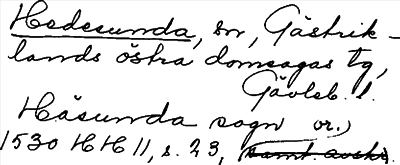 Hedesunda, sn, Gästrik-
lands östra domsagas tg,
Gävleb. l.
Häsunda sogn or.)
1530 HH II, s. 23,